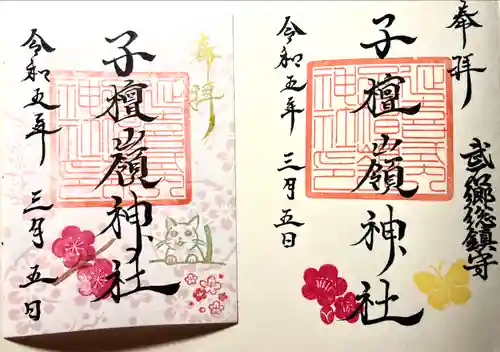 奉拝
子檀嶺神社
令和五年 三月 五日
奉拝
武石郷総鎮守
子檀嶺神社
令和五年 三月五日